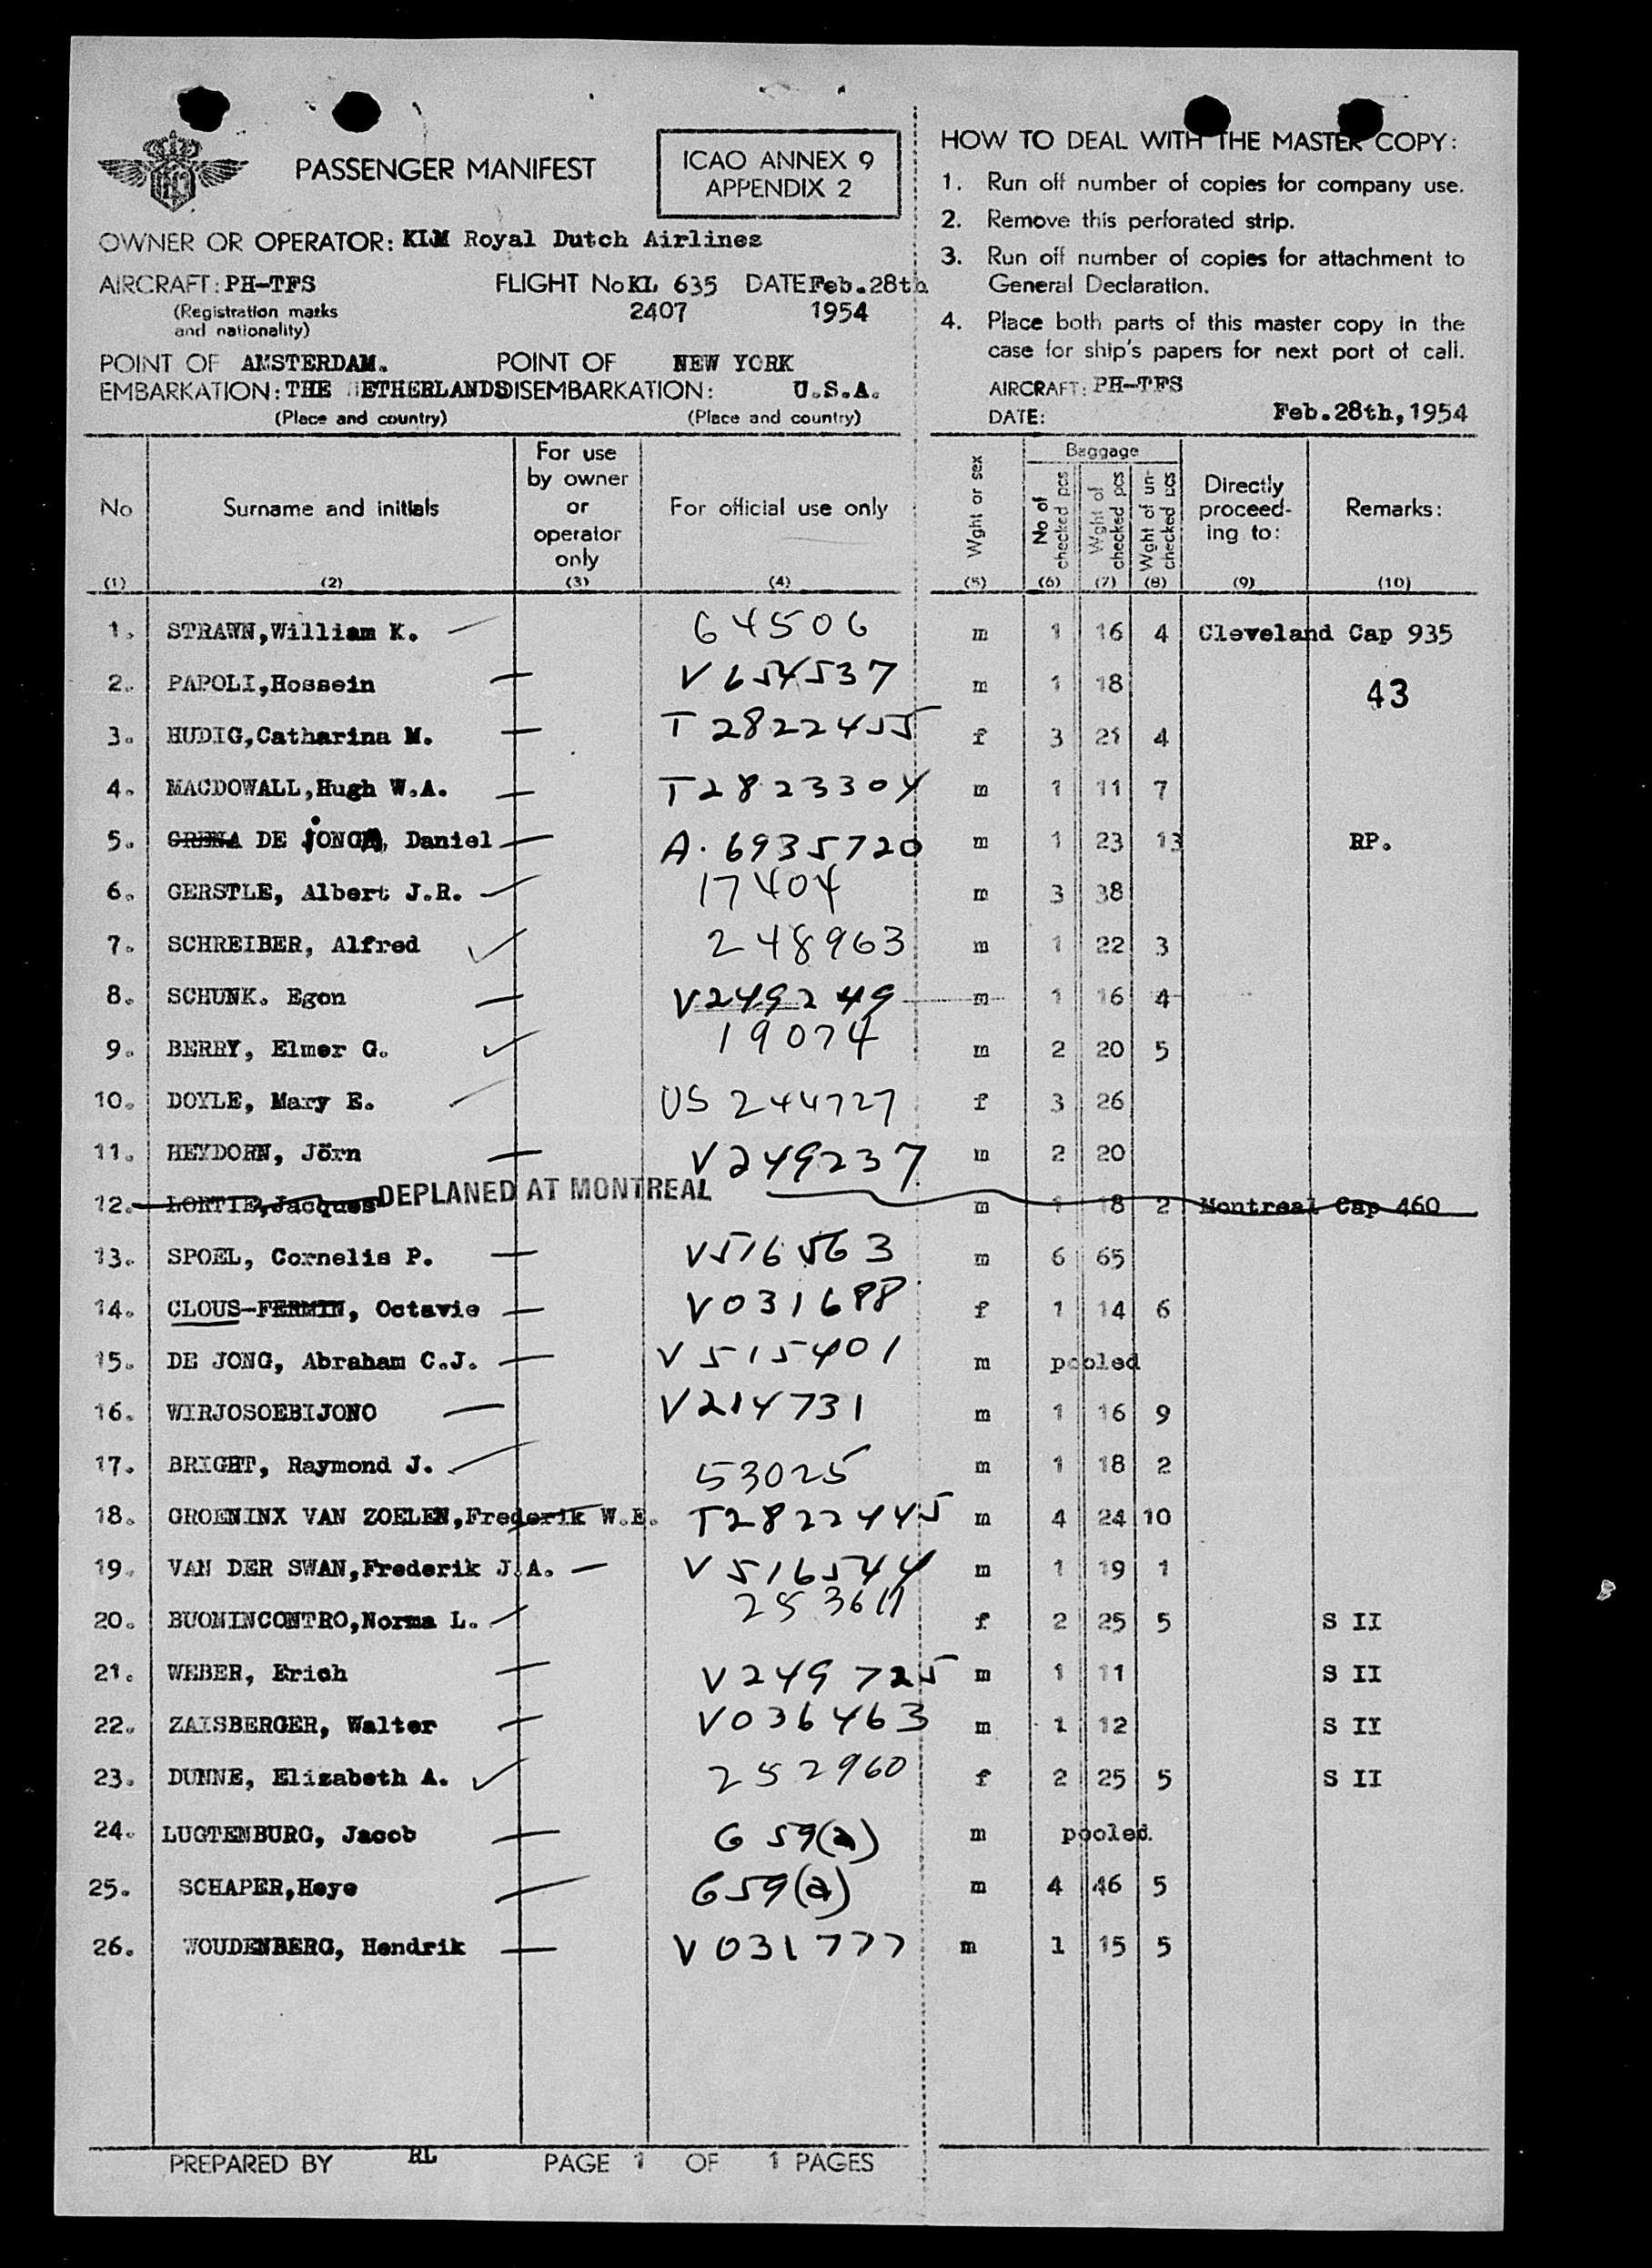 PASSENGER MANIFEST
ICAO ANNEX 9
APPENDIX 2
OWNER OR OPERATOR: KLM Royal Dutch Airlines
AIRCRAFT: PH-TFS FLIGHT No KL 635 DATE Feb.28th
(Registration marks 2407 1954
and nationality)
POINT OF AMSTERDAM. POINT OF NEW YORK
EMBARKATION: THE NETHERLANDS DISEMBARKATION: U.S.A.
(Place and country) (Place and country)
HOW TO DEAL WITH THE MASTER COPY:
1. Run off number of copies for company use.
2. Remove this perforated strip.
3. Run off number of copies for attachment to
General Declaration.
4. Place both parts of this master copy in the
case for ship's papers for next port of call.
AIRCRAFT: PH-TFS
DATE: Feb.28th,1954
No
(1)
Surname and initials
(2)
For use
by owner
or
operator
only
(3)
For official use only
(4)
Wght or sex
(5)
Baggage
No of
checked pcs
(6)
Wght of
checked pcs
(7)
Wght of un-
checked pcs
(8)
Directly
proceed-
ing to:
(9)
Remarks:
(10)
1. STRAWN,William K. 64506 m 1 16 4 Cleveland Cap 935
2. PAPOLI,Hossein V 654537 m 1 18 43
3. HUDIG,Catharina M. T 2822455 f 3 21 4
4. MACDOWALL,Hugh W.A. T2823304 m 1 11 7
5. DE JONG, Daniel A. 6935720 m 1 23 13 RP.
6. GERSTLE, Albert J.R. 17404 m 3 38
7. SCHREIBER, Alfred 248963 m 1 22 3
8. SCHUNK. Egon V249249 m 1 16 4
9. BERRY, Elmer G. 19074 m 2 20 5
10. DOYLE, Mary E. US 244727 f 3 26
11. HEYDORN, Jörn V249237 m 2 20
12. LORTIE,Jacques DEPLANED AT MONTREAL m 1 18 2 Montreal Cap 460
13. SPOEL, Cornelis P. V516563 m 6 65
14. CLOUS-FERMIN, Octavie V031688 f 1 14 6
15. DE JONG, Abraham C.J. V 515401 m pooled
16. WIRJOSOEBIJONO V214731 m 1 16 9
17. BRIGHT, Raymond J. 53025 m 1 18 2
18. GROENINX VAN ZOELEN,Frederik W.E. T2822445 m 4 24 10
19. VAN DER SWAN,Frederik J.A. V 516544 m 1 19 1
20. BUONINCONTRO,Norma L. 253611 f 2 25 5 S II
21. WEBER, Erich V249725 m 1 11 S II
22. ZAISBERGER, Walter V036463 m 1 12 S II
23. DUNNE, Elizabeth A. 252960 f 2 25 5 S II
24. LUGTENBURG, Jacob G 59(a) m pooled.
25. SCHAPER,Heye G59(a) m 4 46 5
26. WOUDENBERG, Hendrik V031777 m 1 15 5
PREPARED BY RL PAGE 1 OF 1 PAGES